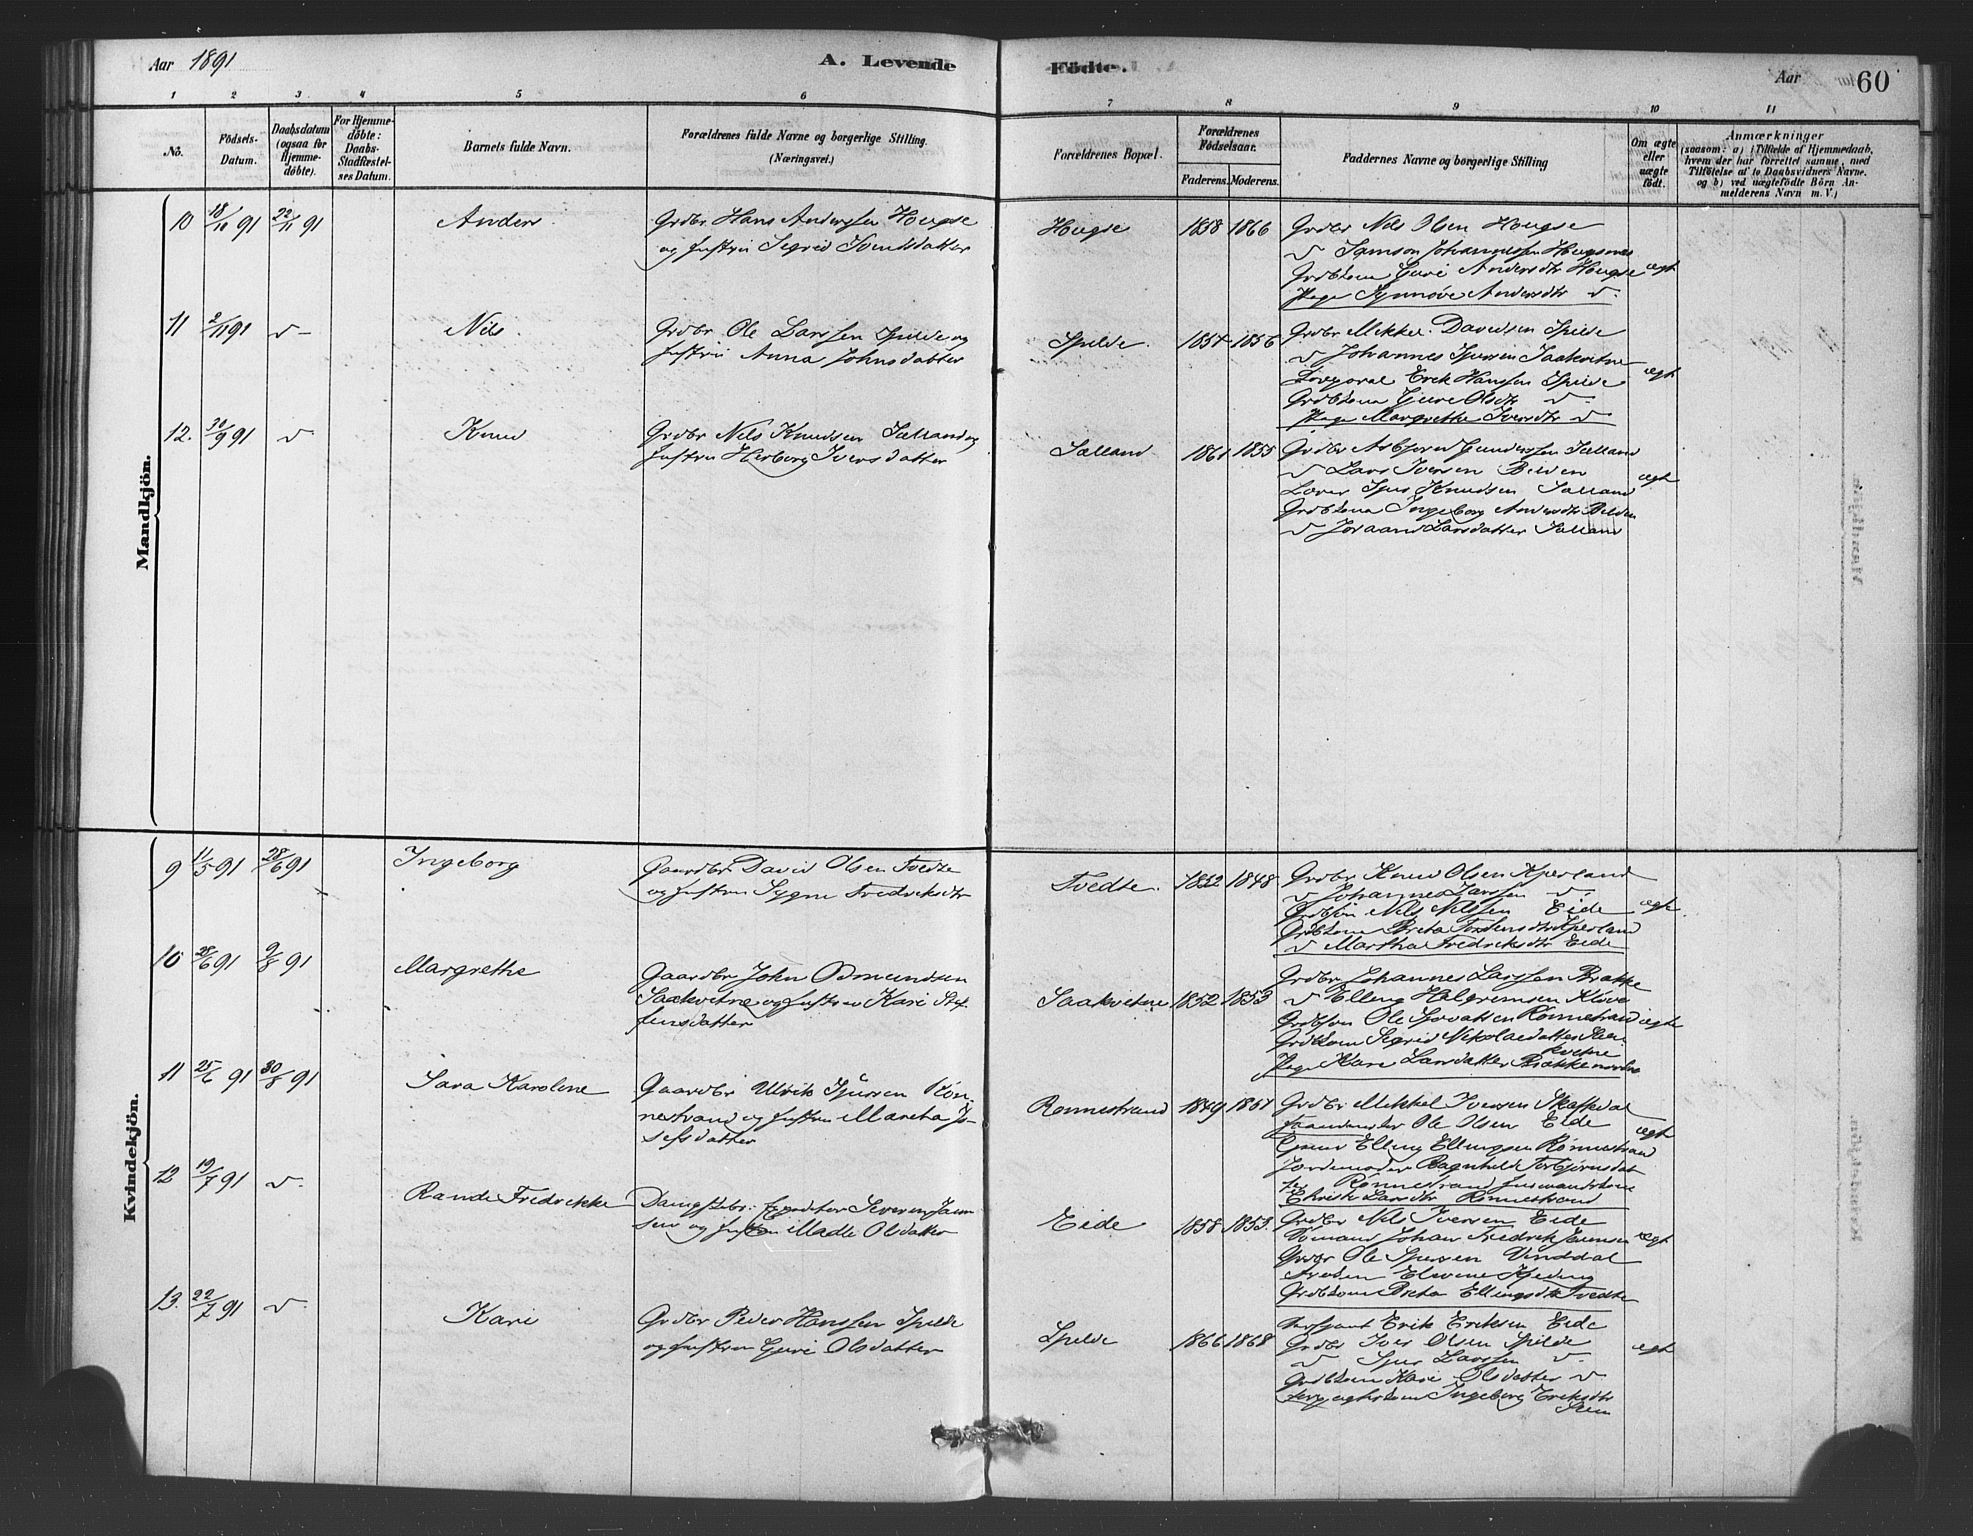 Aar 1891
A. Levende
Födte.
Aar
60
1 2 3 4 5 6 7 8 9 10 11
No.
Födsels-Datum.
Daabsdatum (ogsaa for Hjemme-döbte).
For Hjemme-döbte: Daabs-Stadfæstel-ses Datum.
Barnets fulde Navn.
Forældrenes fulde Navne og borgerlige Stilling. (Næringsvei.)
Forældrenes Bopæl.
Forældrenes Födselsaar.
Faderens. Moderens.
Faddernes Navne og borgerlige Stilling
Om ægte eller uægte födt.
Anmærkninger
(saasom: a) i Tilfælde af Hjemmedaab, hvem der har forrettet samme, med Tilföielse af to Daabsvidners Navne. og b) ved uægtefödte Börn An-melderens Navn m. V.)
Mandkjön.
10 18/10 91 22/11 91 Anders
Grdbr Hans Anderssen Hougse
og hustru Sigrid Svendsdatter
Hougse 1858 1866
Grdbr Nils Olsen Hougse
v Samson Johannessen Hougsnes
Grdbkone Guri Andersdtr Hougse ægt
Pige Synnøve Andersdtr v.
11 2/11 91 v Nils
Grdbr Ole Larssen Spilde og
hustru Anna Johnsdatter
Spilde. 1854 1856
Grdbr Mikkel Davidsen Spilde
v Johannes Sjursen Saakvitne
Korporal Erik Hanssen Spilde ægt
Grdbkone Guri Olsdtr v.
Pige Margrethe Iversdtr v
12. 30/9 91 v Knud
Grdbr Nils Knudsen Sælland og
hustru Herborg Iversdatter
Sælland 1861 1855
Grdbr Asbjørn Gunderssen Sælland
v Lars Iversen Belden
Lærer Sjur Knudsen Sælland ægt
Grdbkone Ingeborg Andersdtr Belden
v Joraand Larsdatter Sælland
Kvindekjön.
9 11/5 91 28/6 91 Ingeborg
Gaardbr David Olsen Tvedte
og hustru Sygni Fredriksdtr
Tvedte. 1832 1848
Grdbr Knud Olsen Kjerland
v Johannes Larssen v.
Grdbsøn Nils Nilssen Eide ægt.
Grdbkone Brita Torbensdtr Kjerland
v Martha Fredriksdtr Eide
10 28/6 91 9/8 91 Margrethe
Gaardbr John Odmundsen
Saakvitne og hustru Kari Stef
fensdatter
Saakvitne 1852 1853
Grdbr Johannes Larssen Brakke
v Elling Halgrimsen Kløve
Grdbsøn Ole Sjovatsen Rønnestrand ægte
Grdbkone Sigrid Nikolaidatter Saa
kvitne
Pige Kari Larsdatter Brakke nordre
11 25/6 91 30/8 91 Sara Karoline
Gaardbr Ulrik Sjursen Røn
nestrand og hustru Martha Jo
sefsdatter
Rønnestrand 1849 1851
Grdbr Mikkel Iversen Skaftedal
Ole Olsen Eide ægt
Elling Ellingsen Rønnestrand
Jordemoder Ragnhild Torbjørnsdat
ter Rønnestrand
Larsdtr Rønnestrand
12 19/7 91 v. Rande Fredrikke
Dampskibs: Expeditør Severin Jan
sen og hustru Madli Olsdatter
Eide 1858 1853.
Grdbr Nils Iversen Eide
Johan Fredrik Jansen ægt
Grdbr Ole Sjursen Vinddal
Frøken Elvine Kjeding
Grdbkone Brita Ellingsdtr Tvedte
13. 22/7 91 v. Kari
Grdbr Peder Hanssen Spilde
og hustru Guri Olsdatter
Spilde 1866 1868
Sergeant Erik Eriksen Eide
Grdbr Iver Olsen Spilde
v Sjur Larssen v. ægt
Grdbkone Kari Olsdatter v
Ingeborg Eriksdtr